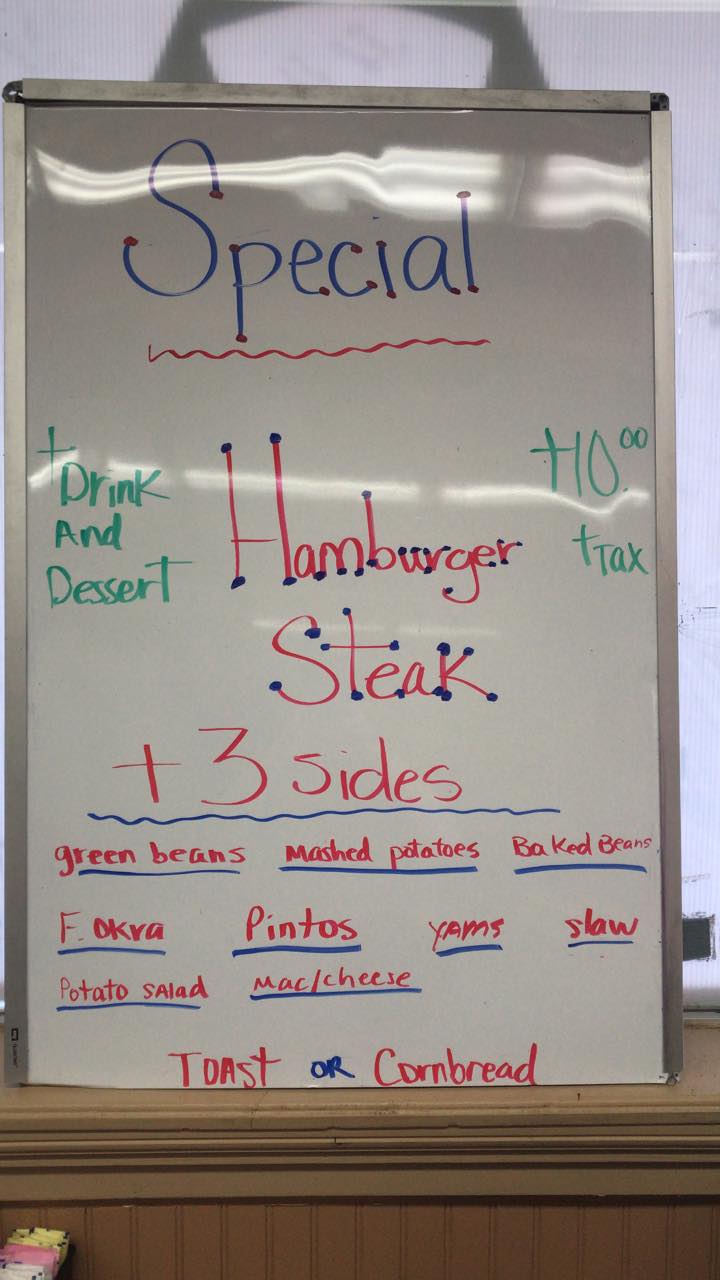 Special
+ Drink And Dessert
Hamburger
Steak
+10.00
+Tax
+ 3 sides
green beans Mashed potatoes Baked Beans
F. OKra Pintos YAMS slaw
Potato SAlad Mac/cheese
TOAST OR Cornbread